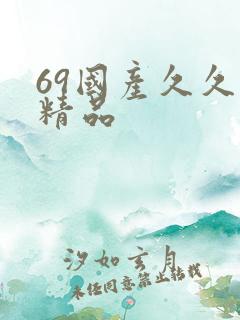 69國產久久
精品
汐如玄月
未經同意禁止轉載